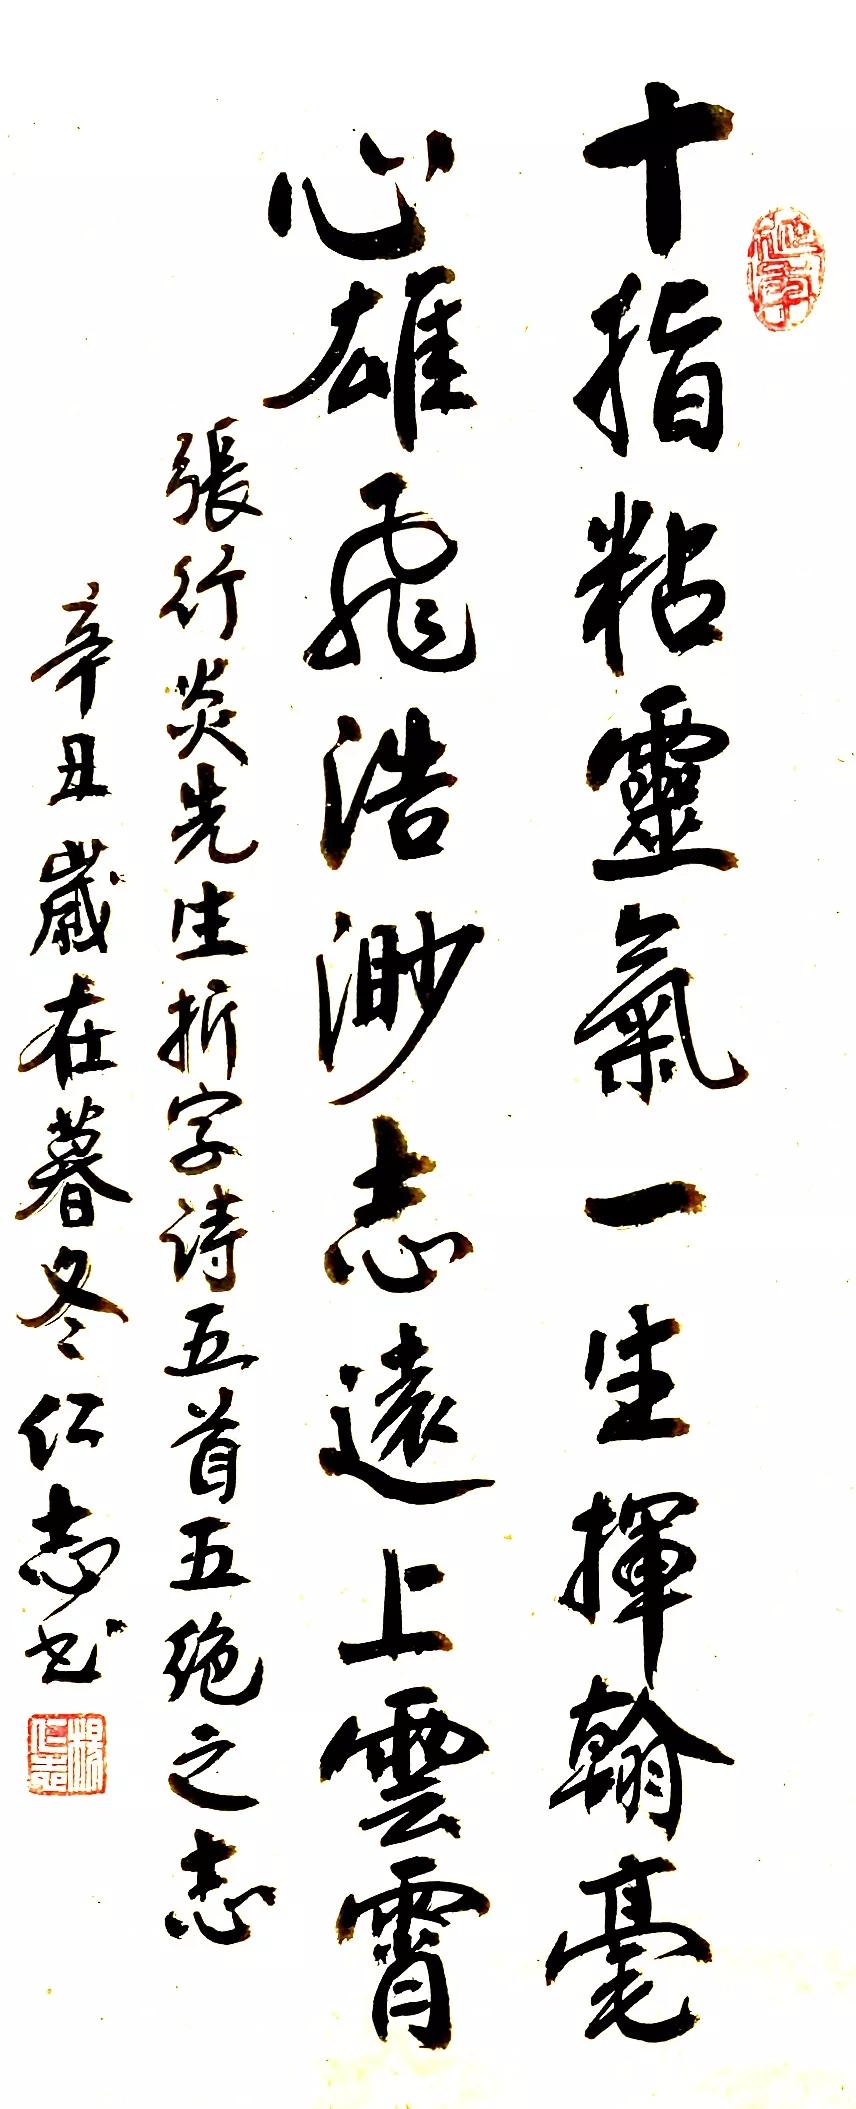 十指粘靈氣一生揮翰毫
心雄飛浩渺志遠上雲霄
張行炎先生折字诗五首五绝之志
辛丑歲在暮冬仁志书
楊仁志